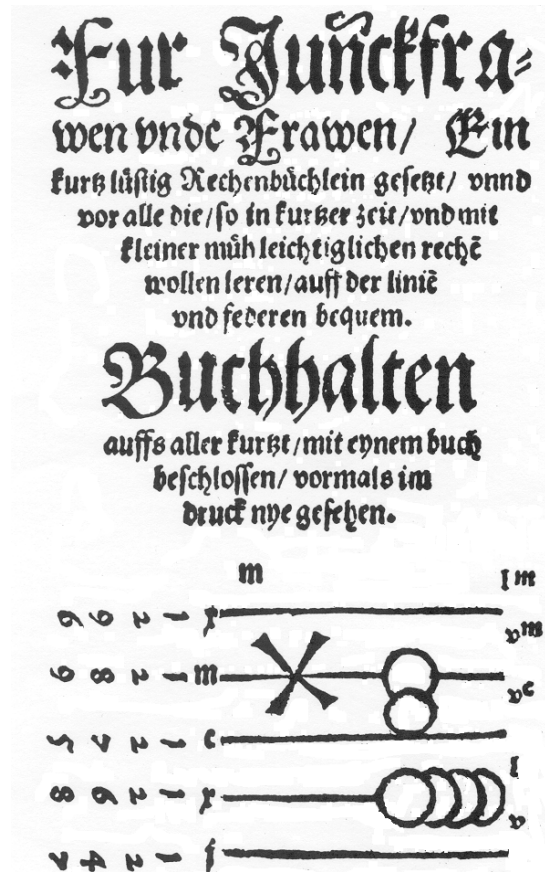 Fur Juñckfra⸗
wen vnde Frawen/ Ein
kurtz lüstig Rechenbüchlein gesetzt/ vnnd
vor alle die/so in kurtzer zeit/vnd mit
kleiner müh leichtiglichen rechē
wollen leren/auff der liniē
vnd federen bequem.
Buchhalten
auffs aller kurtzt/mit eynem buch
beschlossen/ vormals im
druck nye gesehen.
m
l m
x
v m
m
v c
c
l
x
v
j